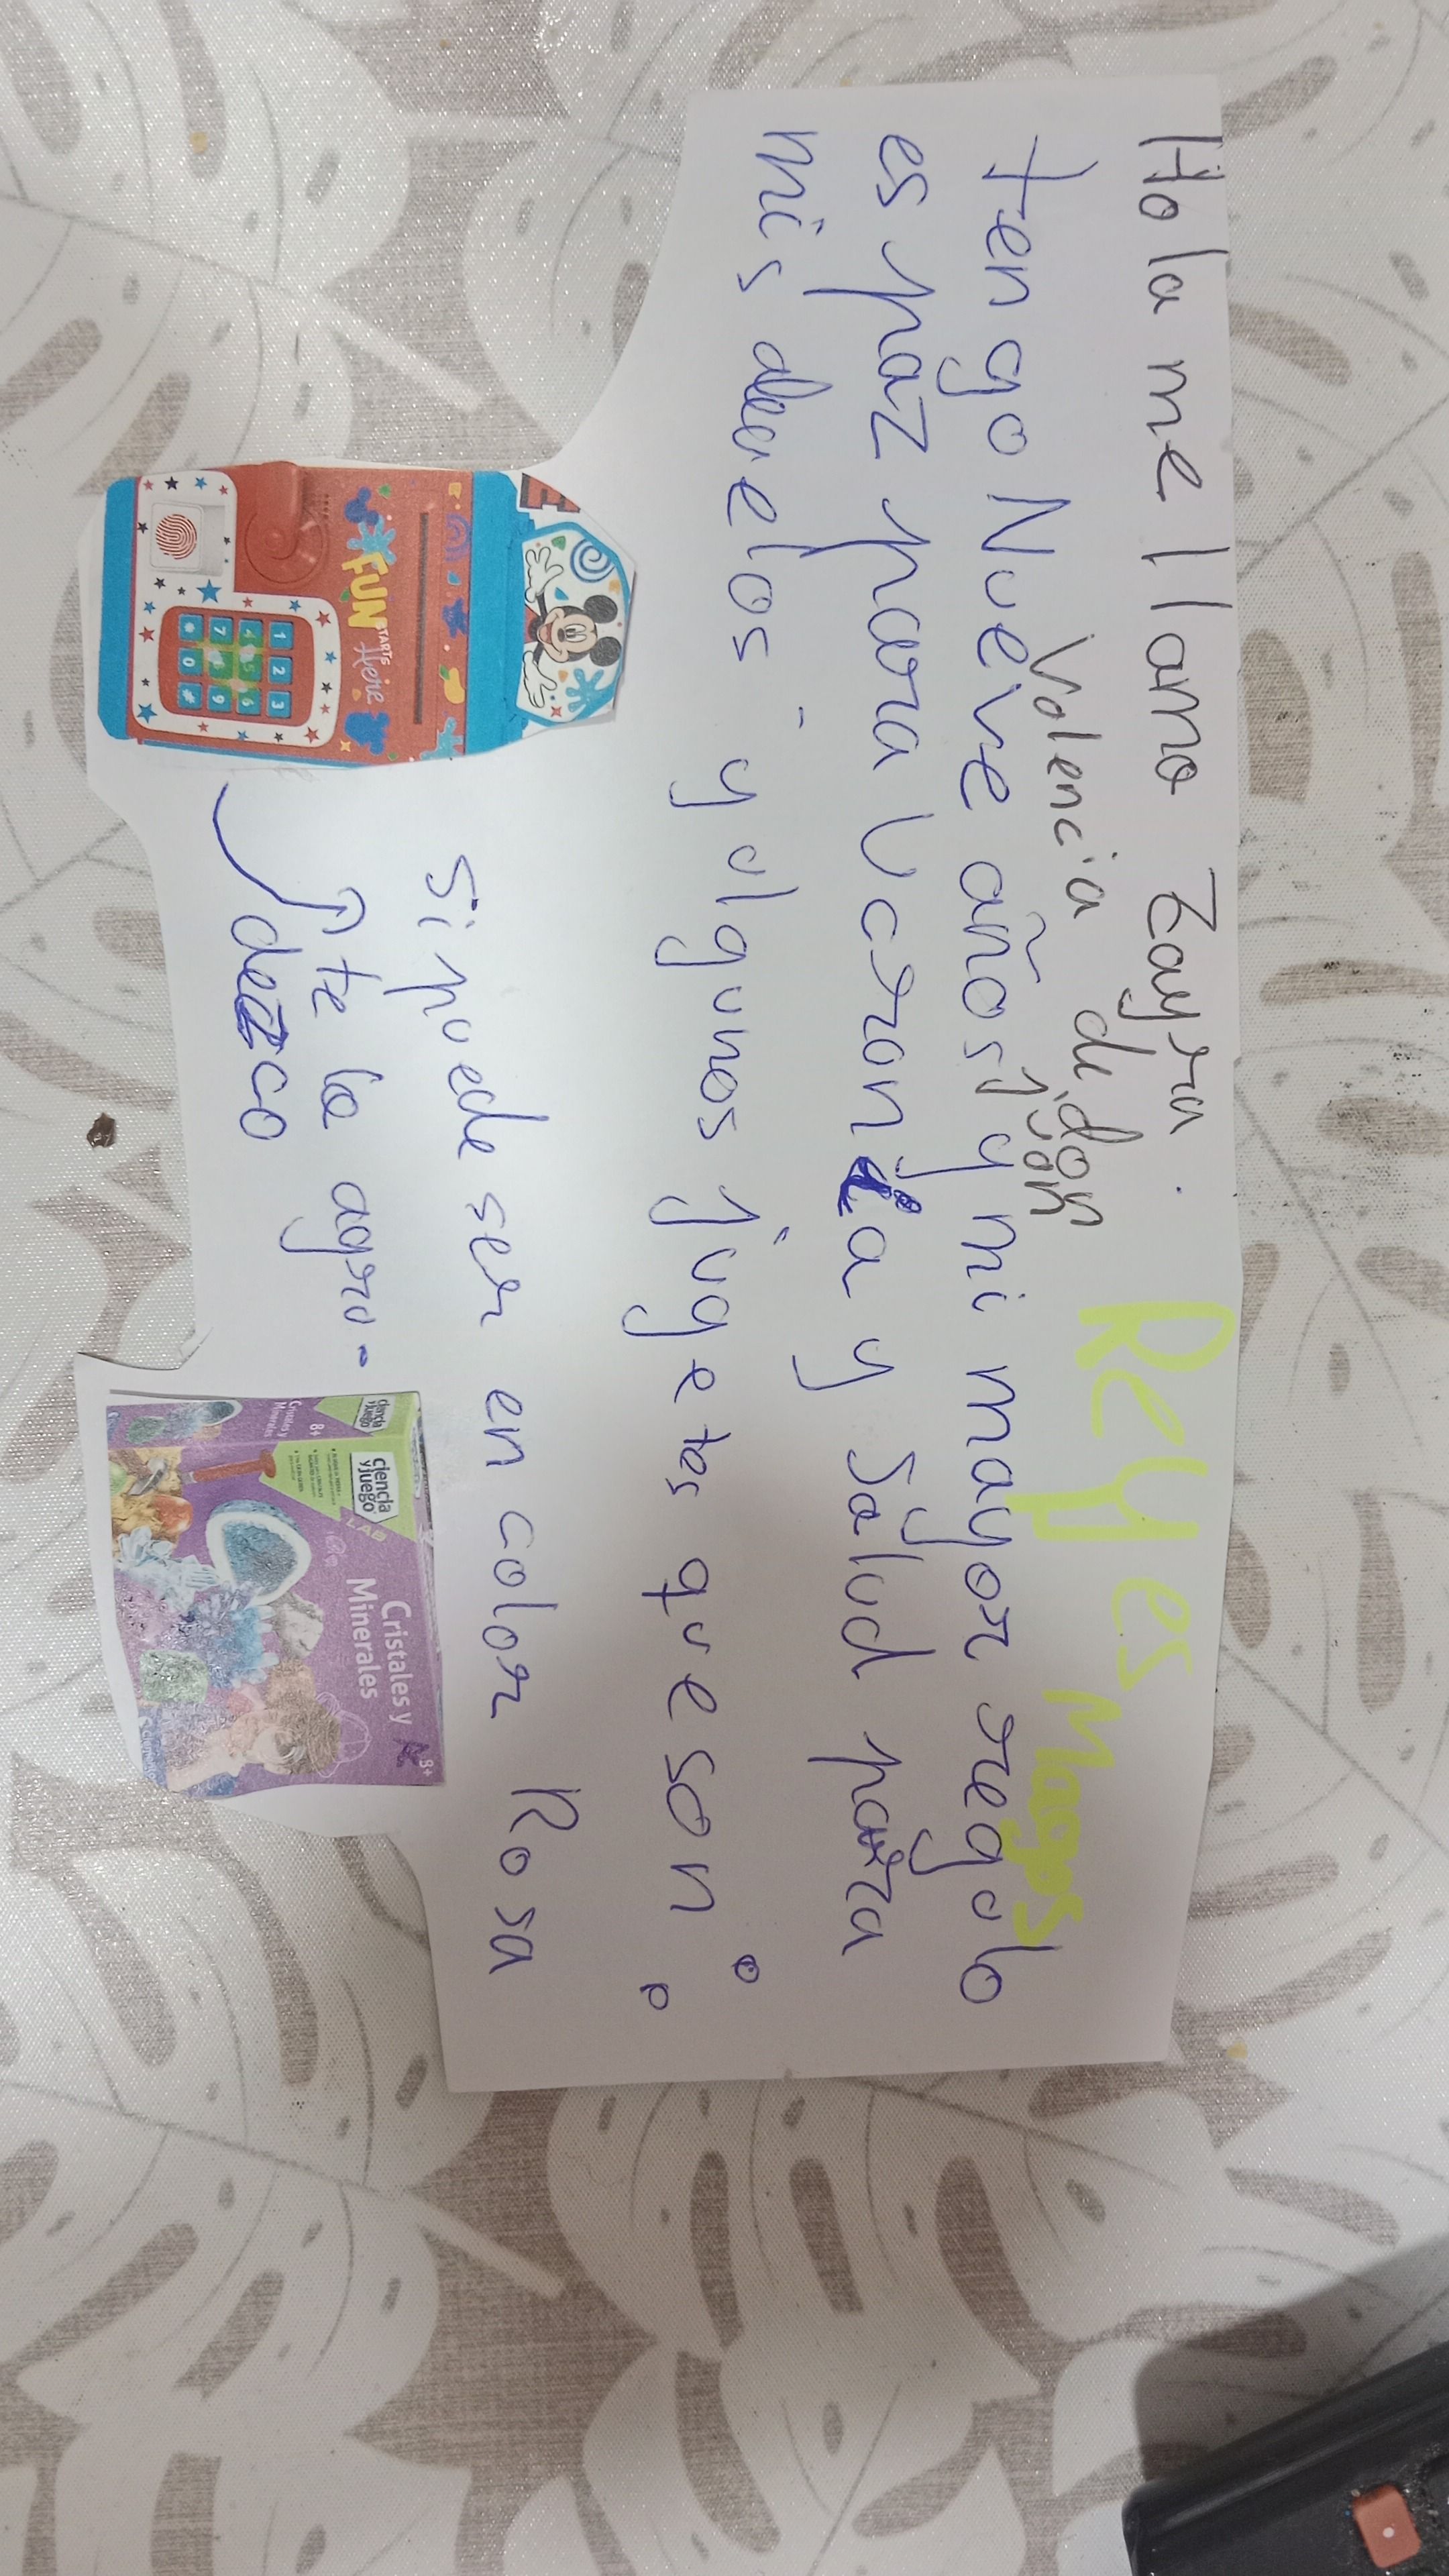 Hola me llamo Zayra.
Valencia de don
Juan
Reyes
Magos
tengo Nueve años y mi mayor regalo
es paz para Ucrania y Salud para
mis abuelos - y algunos jugetes que son:
si puede ser en color Rosa
te la agra-
dezco
FUN
STARTS
Here
1 2 3
4 5 6
7 8 9
* 0 #
ciencia
y juego
LAB
Cristales y
Minerales
8+
ciencia
y juego
8+
Cristales y
Minerales